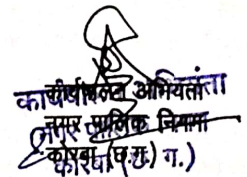 कार्यपालन अभियंता
नगर पालिक निगम
कोरबा (छ. ग.)